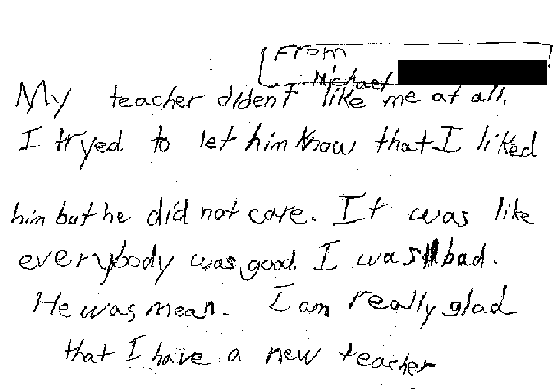 From
Michael
My teacher dident like me at all.
I tryed to let him know that I liked
him but he did not care. It was like
everybody was good I was bad.
He was mean. I am really glad
that I have a new teacher